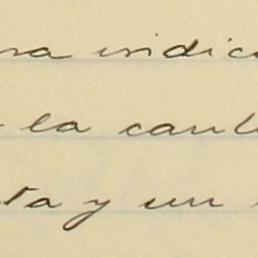 ra indic
la can
ta y un